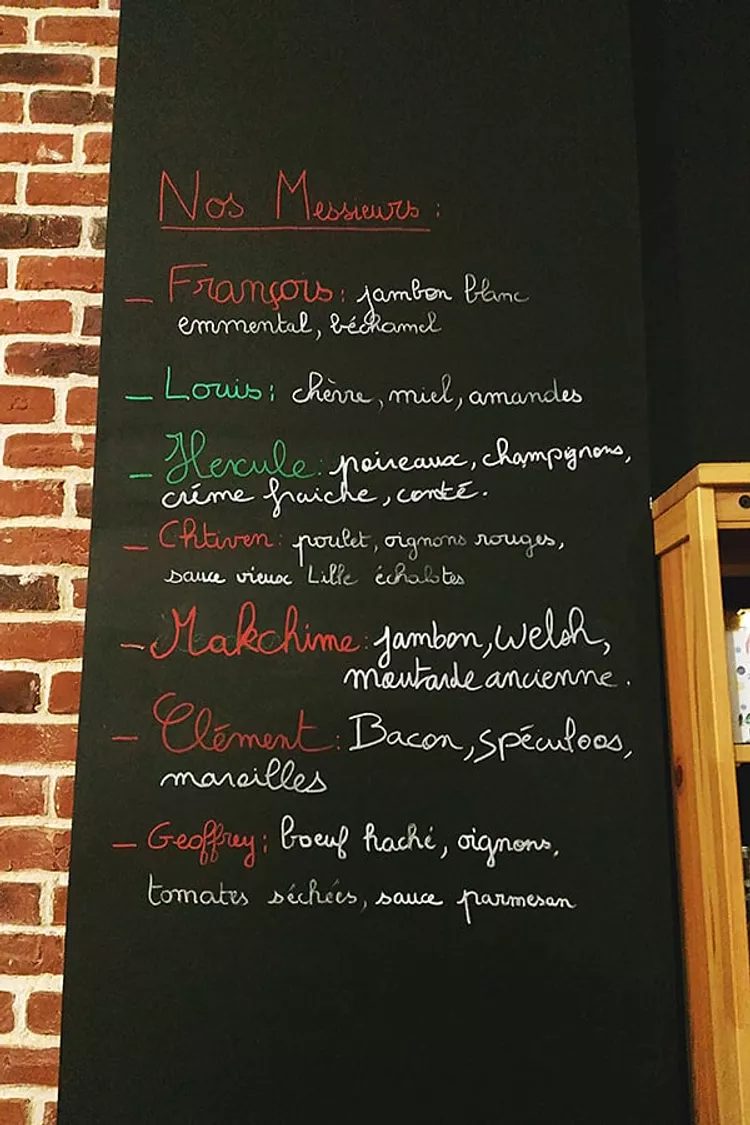 Nos Messieurs :
- François : jambon blanc
emmental, béchamel
- Louis : chèvre, miel, amandes
- Hercule : poireaux, champignons,
crème fraiche, comté.
- Chtiven : poulet, oignons rouges,
sauce vieux Lille échalotes
- Makchime : jambon, welsh,
moutarde ancienne.
- Clément : Bacon, spéculoos,
maroilles
- Geoffrey : boeuf haché, oignons,
tomates séchées, sauce parmesan